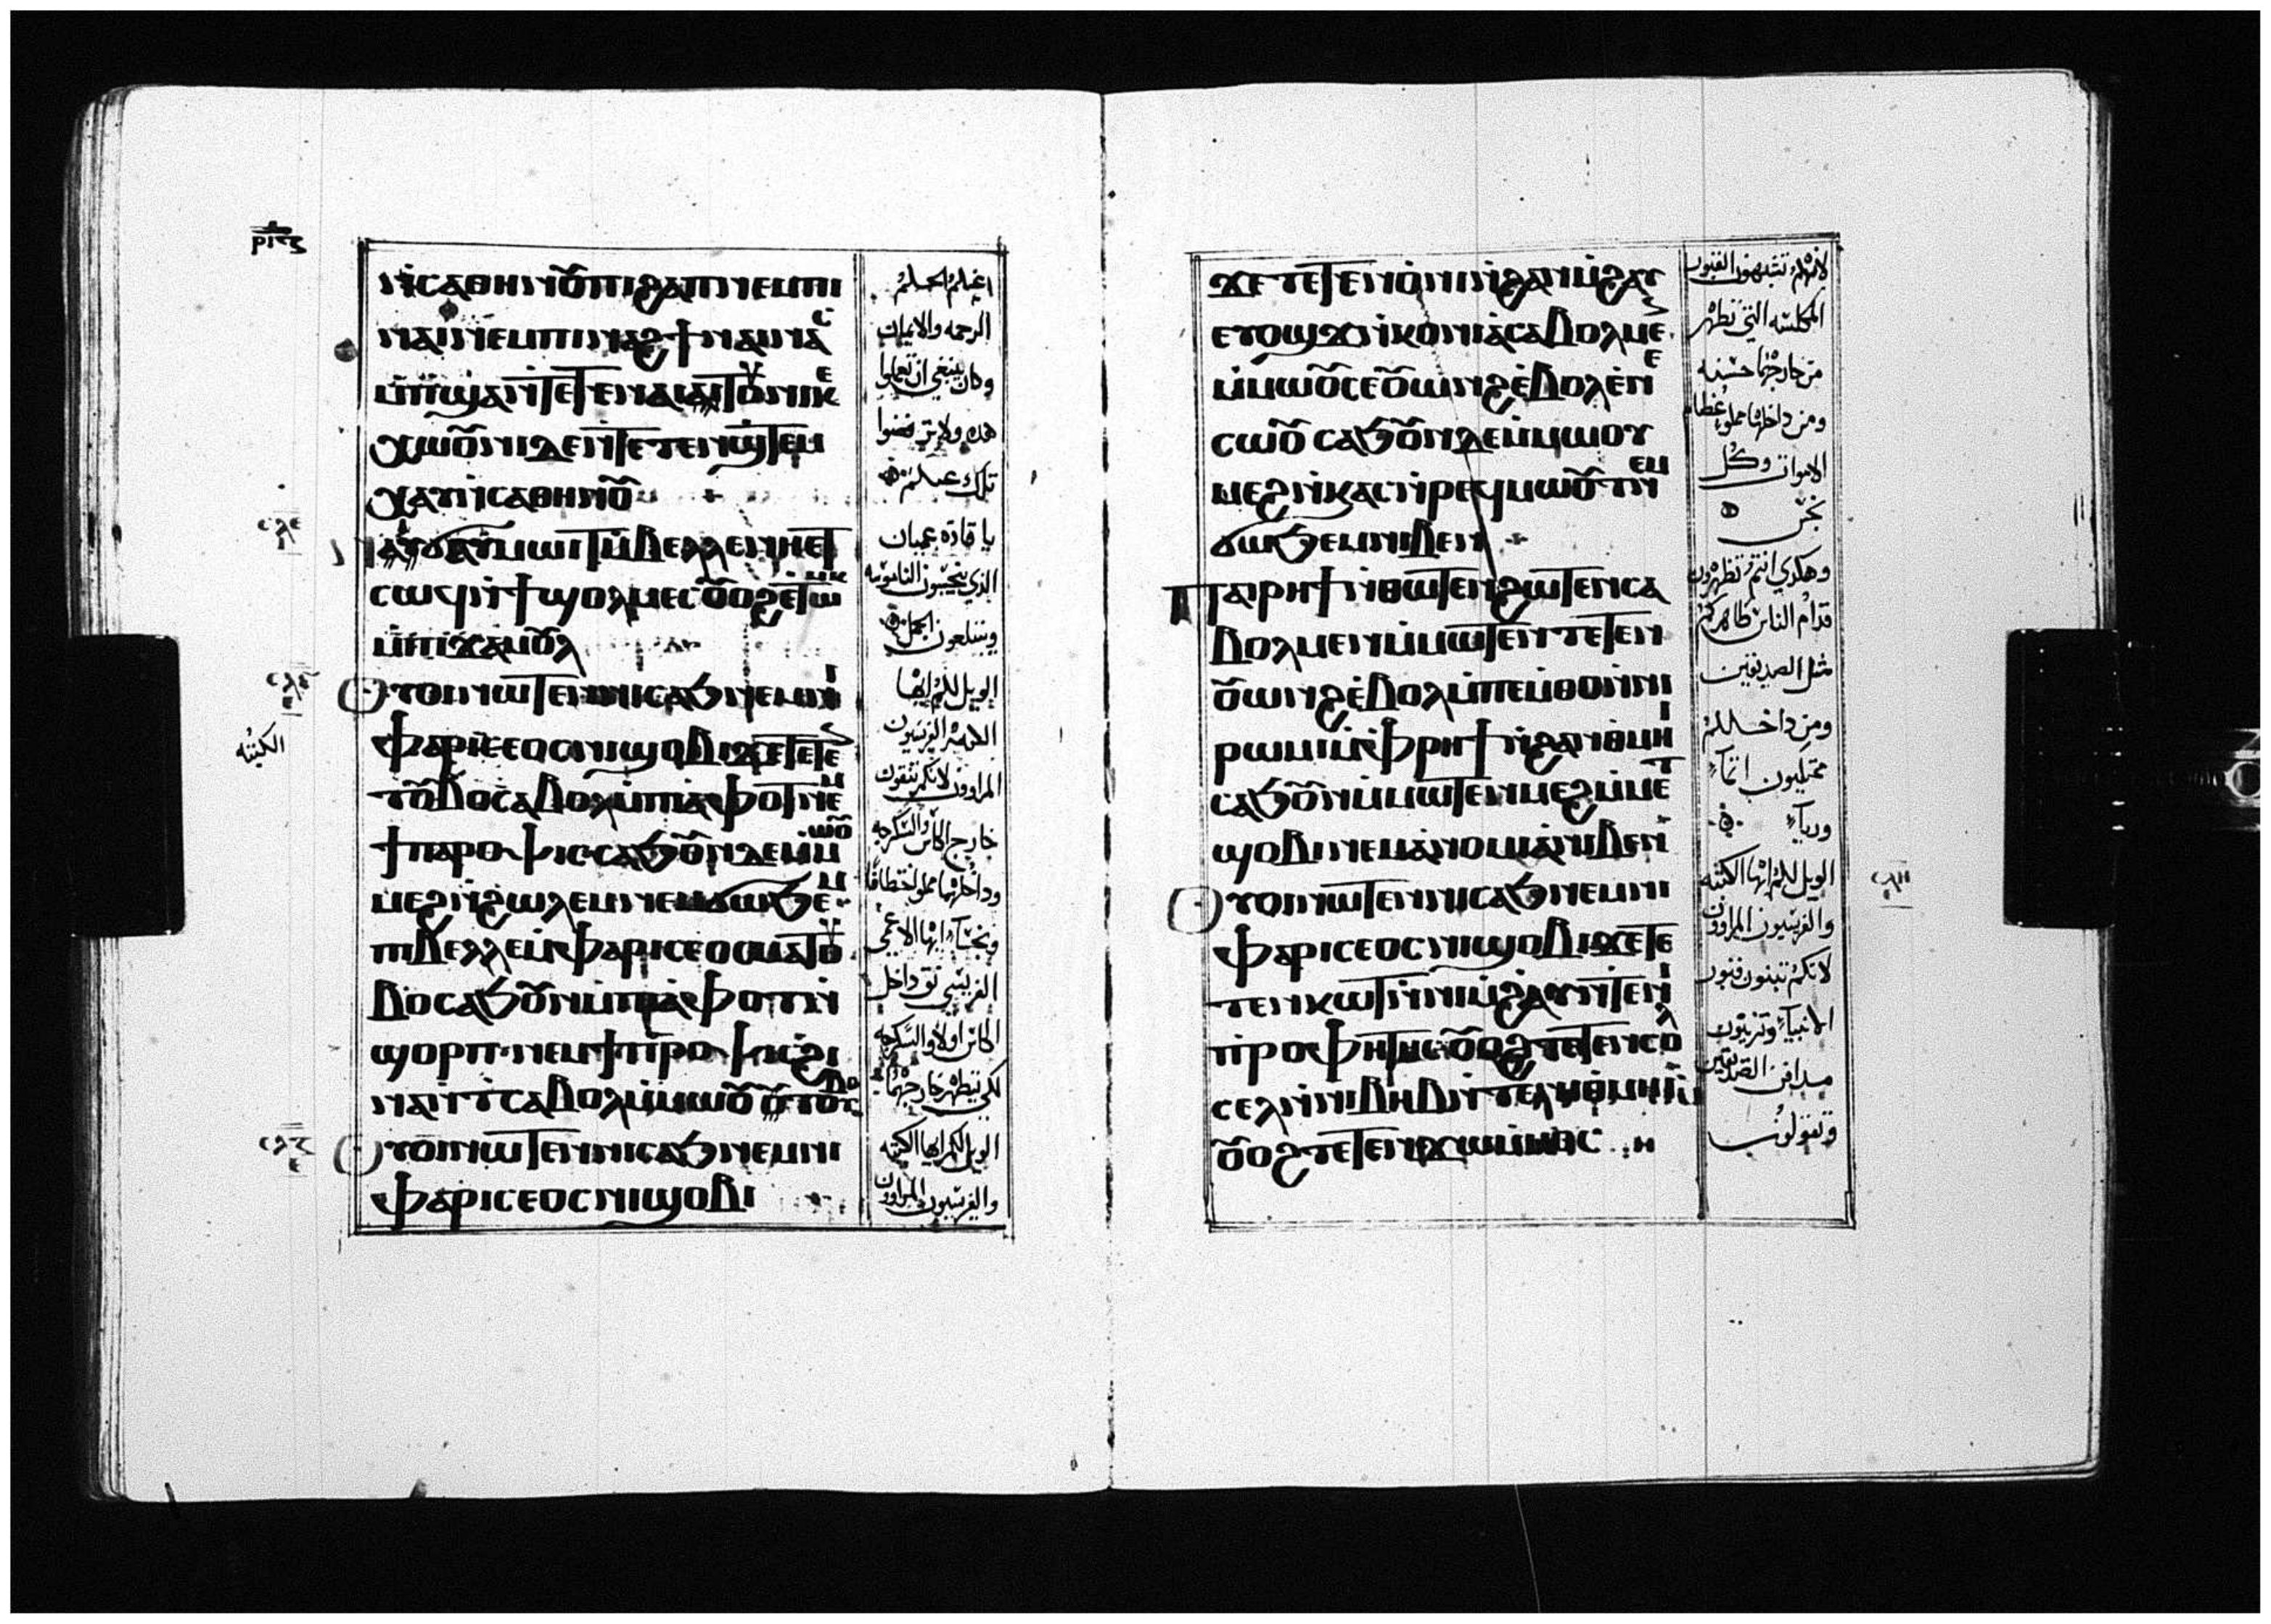 ⲛⲓⲥⲁⲑⲏⲛⲟⲩⲡⲓϩⲁⲡⲛⲉⲙⲡⲓ
ⲛⲁⲓⲛⲉⲙⲡⲓⲛⲁϩϯⲛⲁⲓⲛⲁⲥ
ⲙⲡϣⲁⲛⲧⲉⲧⲉⲛⲁⲓⲧⲟⲩⲛⲓⲕⲉ
ⲭⲱⲟⲩⲛⲓⲇⲉⲛⲧⲉⲧⲉⲛϣⲧⲉⲙ
ⲭⲁⲩⲛⲥⲁⲑⲏⲛⲟⲩ
ⲛⲓϭⲁⲩⲙⲱⲓⲧⲙⲃⲉⲗⲗⲉⲛⲏⲉⲧ
ⲥⲱϥⲛϯϣⲟⲗⲙⲉⲥⲟⲩⲟϩⲉⲧⲱⲙⲕ
ⲙⲡⲓϫⲁⲙⲟⲩⲗ
ⲟⲩⲟⲓⲛⲱⲧⲉⲛⲛⲓⲥⲁϧⲛⲉⲙⲛⲓ
ⲫⲁⲣⲓⲥⲉⲟⲥⲛⲓϣⲟⲃⲓϫⲉⲧⲉⲧⲉⲛ
ⲧⲟⲩⲃⲟⲥⲁⲃⲟⲗⲙⲡⲓⲁⲫⲟⲧⲛⲉⲙ
ϯⲡⲁⲣⲟⲯⲓⲥⲥⲁϧⲟⲩⲛⲇⲉⲙⲙⲱⲟⲩ
ⲙⲉϩⲛϩⲱⲗⲉⲙⲛⲉⲙϭⲱϧⲉⲙ
ⲡⲓⲃⲉⲗⲗⲉⲙⲫⲁⲣⲓⲥⲉⲟⲥⲙⲁⲧⲟⲩ
ⲃⲟⲥⲁϧⲟⲩⲛⲙⲡⲓⲁⲫⲟⲧⲛ
ϣⲟⲣⲡⲛⲉⲙϯⲡⲣⲟⲯⲓⲥϩⲓ
ⲛⲁⲛⲧⲉⲥⲁⲃⲟⲗⲙⲙⲱⲟⲩⲧⲟⲩⲃⲟ
ⲟⲩⲟⲓⲛⲱⲧⲉⲛⲛⲓⲥⲁϧⲛⲉⲙⲛⲓ
ⲫⲁⲣⲓⲥⲉⲟⲥⲛⲓϣⲟⲃⲓ
اغنلم الحلم
الرحمه والايمان
وكان ينبغي ان تعملوا
هذه ولا ترفضوا
تلك عنلم
يا قاده عميان
الويل للم ايها
الكتبه
المراوون لانكم تنقون
خارج الكاس والسكرجه
الفريسي نق داخل
الكاس اولا والسكرجه
لكي يتطهر خارجهما
الويل لكم ايها الكتبه
والفريسيون المراوون
ϫⲉⲧⲉⲧⲉⲛⲟⲛⲓⲛϩⲁⲛⲙϩⲁⲩ
ⲉⲩⲟϣϫⲛⲕⲟⲛⲓⲁⲥⲁⲃⲟⲗⲙⲉⲛ
ⲙⲙⲱⲟⲩⲥⲉⲟⲩⲱⲛϩⲉⲃⲟⲗⲉⲛⲉ
ⲥⲱⲟⲩ ⲥⲁϧⲟⲩⲛⲇⲉⲙⲙⲱⲟⲩ
ⲙⲉϩⲛⲕⲁⲥⲛⲣⲉϥⲙⲱⲟⲩⲧⲛⲉⲙ
ϭⲱϧⲉⲙⲛⲓⲃⲉⲛ
ⲡⲁⲓⲣⲏϯⲛⲑⲱⲧⲉⲛϩⲱⲧⲉⲛⲥⲁ
ⲃⲟⲗⲙⲉⲛⲙⲙⲱⲧⲉⲛⲧⲉⲧⲉⲛ
ⲟⲩⲱⲛϩⲉⲃⲟⲗⲙⲡⲉⲙⲑⲟⲛⲛⲓ
ⲣⲱⲙⲓⲙⲫⲣⲏϯⲛϩⲁⲛⲑⲙⲏⲓ
ⲥⲁϧⲟⲩⲛⲙⲙⲱⲧⲉⲛⲙⲉϩⲙⲙⲉⲧ
ϣⲟⲃⲓⲛⲉⲙⲁⲛⲟⲙⲓⲁⲛⲓⲃⲉⲛ
ⲟⲩⲟⲓⲛⲱⲧⲉⲛⲛⲓⲥⲁϧⲛⲉⲙⲛⲓ
ⲫⲁⲣⲓⲥⲉⲟⲥⲛⲓϣⲟⲃⲓϫⲉⲧⲉ
ⲧⲉⲛⲕⲱⲧⲛⲛⲓⲙϩⲁⲩⲛⲧⲉⲛⲓ
ⲡⲣⲟⲫⲏⲧⲏⲥⲟⲩⲟϩⲧⲉⲧⲉⲛⲥⲟⲗ
ⲥⲉⲗⲛⲛⲓⲃⲏⲃⲛⲧⲉⲛⲓⲑⲙⲏⲓ
ⲟⲩⲟϩⲧⲉⲧⲉⲛϫⲱⲙⲙⲟⲥ
لانلم تشبهون القبور
المكلسه التي تظهر
من خارجها حسنه
ومن داخلها مملوه عظام
الاموات وكل
نجس
وهكذي انتم تظهرون
قدام الناس ظاهركم
مثل الصديقين
ومن داخللم
ممتليون اثما
ورياء
الويل للم ايها الكتبه
والفريسيون المراوون
لانكم تبنون قبور
الانبياء وتزينون
مدافن الصديقين
وتقولون